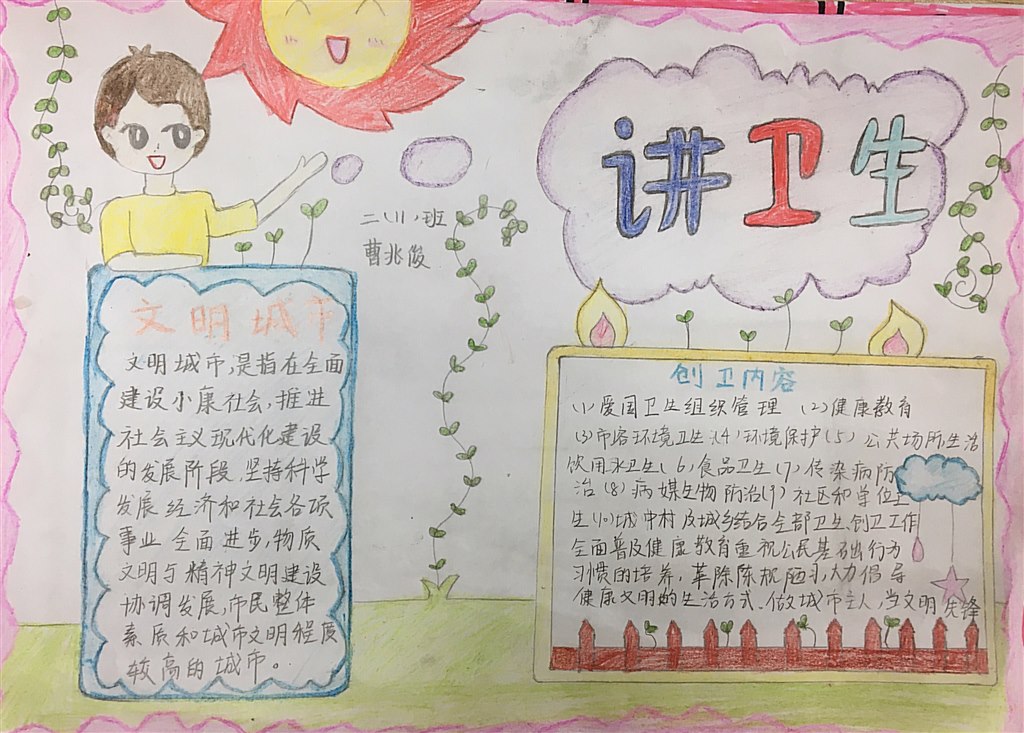 讲卫生
二（11）班
曹兆俊
文明城市
文明城市，是指在全面
建设小康社会，推进
社会主义现代化建设
的发展阶段，坚持科学
发展 经济和社会各项
事业 全面进步，物质
文明与精神文明建设
协调发展，市民整体
素质和城市文明程度
较高的城市。
创卫内容
（1）爱国卫生组织管理 （2）健康教育
（3）市容环境卫生（4）环境保护（5）公共场所生活
饮用水卫生（6）食品卫生（7）传染病防
治（8）病媒生物防治（9）社区和单位卫
生（10）城中村及城乡结合全部卫生创卫工作
全面普及健康教育重视公民基础行为
习惯的培养，革除陈规陋习，大力倡导
健康文明的生活方式、做城市主人，当文明先锋